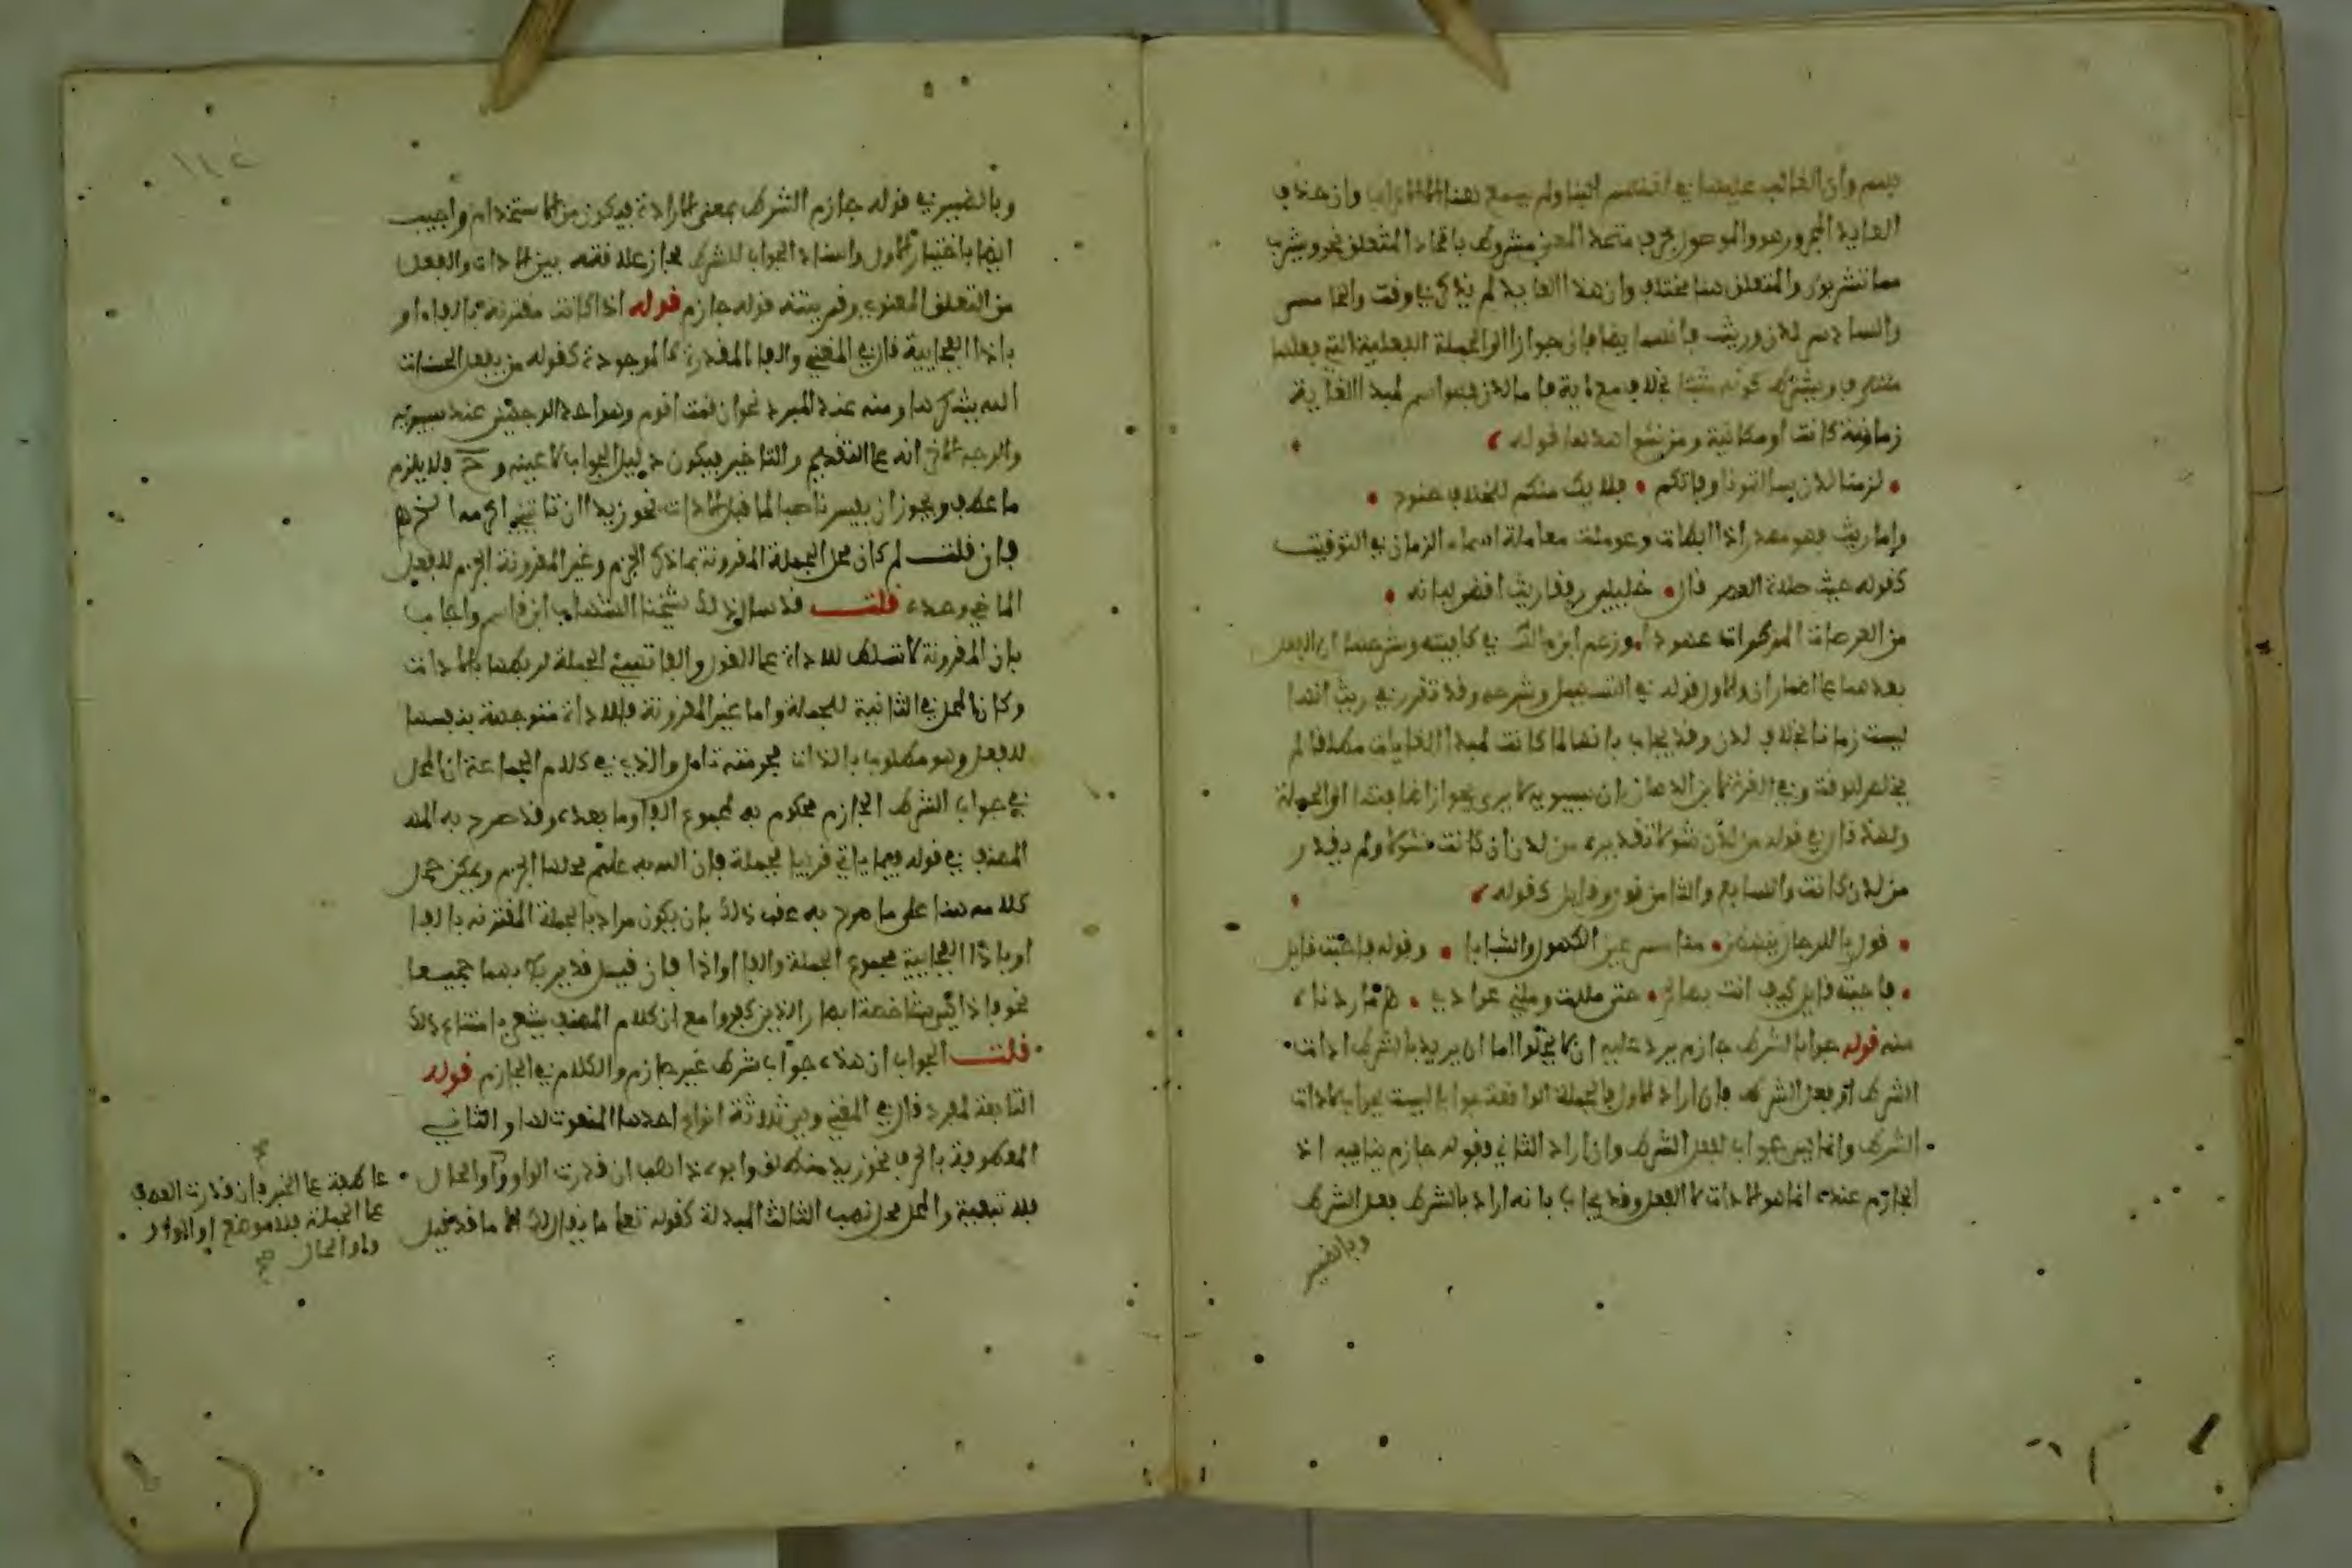 العايد المجرور هو والموصول بحرف متحد المعنى مشروط باتحاد المتعلق نحو ويشرب
مما تشربون والمتعلق هنا مختلف وان هذا العايد لم يذكر في وقت والخامس
والسادس لدن وريث فانهما يضافان جوازا الى الجملة الفعلية التي فعلها
متصرف ويشترط كونه مثبتا بخلافه مع اية فاما لدن فهو اسم لمبدا الغاية
زمانية كانت او مكانية ومن شواهدها قوله
لزمنا لدن سالتمونا وفاقكم فلا يك منكم للخلاف جنوح
واما ريث فهو مصدر راث اذا ابطا وعوملت معاملة اسماء الزمان في التوقيت
كقوله جيث صلاة العصر قال خليلي رفقا ريث اقضي لبانة
من العرصات المذكرات عهودا وزعم ابن مالك في كافيته وشرحها ان الفعل
بعدهما على اضمار ان والاول قوله في التسهيل وشرحه وقد تقرر في ريث انها
ليست زمانا بخلاف لدن وقد يجاب بانها لما كانت لمبدا الغايات مطلقا لم
يخلص للوقت وفي الغرة لابن الدهان ان سيبويه لا يرى جواز اضافتها الى الجملة
ولهذا قال في قوله من لدن شولا تقديره من لدن ان كانت شولا ولم يقدر
من لدن كانت والسابع والثامن قول وقايل كقوله
قول يا للرجال ينهض منا مسرعين الكهول والشبابا وقوله فاجبت قايل
فاجبته قايل كيف انت بصالح حتى مللت وملني عوادي
منه قوله جوابا لشرط جازم يرد عليه ان لا يخلوا اما ان يريد بالشرط ادات
الشرط او فعل الشرط فان اراد الاول فالجملة الواقعة جوابا ليست جوابا لادات
الشرط وانما هي جواب لفعل الشرط وان اراد الثاني فقوله جازم ينافيه اذ
الجازم عنده انما هو الادات لا الفعل وقد يجاب بانه اراد بالشرط فعل الشرط
وبالضمير
وبالضمير في قوله جازم الشرط بمعنى الاداة فيكون من الاستخدام واجيب
ايضا باختيار الاول واسناد الجواب للشرط مجاز علاقته بين الادات والفعل
من التعلق المعنوي وقرينته قوله جازم قوله اذا كانت مقترنة بالفاء او
باذا الفجايية قال في المغني والفا المقدرة كالموجودة كقوله من يفعل الحسنات
الله يشكرها ومنه عند المبرد نحو ان قمت اقوم وهو احد الوجهين عند سيبويه
والوجه الاخر انه على التقديم والتاخير فيكون دليل الجواب لا عينه وح فلا يلزم
ما عطف ويجوز ان يفسر ناصبا لما قبل الادات نحو زيدا ان تاتيني اكرمه
فان قلت لم كان محل الجملة المقرونة بما ذكر الجزم وغير المقرونة الجزم للفعل
الماضي وحده قلت قد سال ذلك شيخنا الشهاب ابن قاسم واجاب
بان المقرونة لا تسلط للاداة على الفول والفا تهيئ الجملة لربطها بالادات
وكان المحل في الثانية للجملة واما غير المقرونة فالاداة متوجهة بنفسها
للفعل وهو مطلوبها بالذات تامل والذي في كلام الجماعة ان المحل
في جواب الشرط الجازم محكوم به لمجموع الفا وما بعده وقد صرح به
المصنف في قوله فيما ياتي قريبا فجملة فان الله به عليم محلها الجزم ويمكن حمل
كلامه هنا على ما صرح به عقب ذلك بان يكون مراد بالجملة المقترنة بالفا
او باذا الفجايية مجموع الجملة والفا او اذا فان قيل قد يربط بهما جميعا
نحو فاذا هي شاخصة ابصار الذين كفروا مع ان كلام المصنف يشعر بامتناع ذلك
قلت الجواب ان هذه جواب شرط غير جازم والكلام في الجازم قوله
التابعة لمفرد قال في المغني وهي ثلاثة انواع احدها المنعوت لها والثاني
المعطوفة بالحرف نحو زيد منطلق وابوه ذاهب ان قدرت الواو واو الحال
فلا تبعية والمحل محل نصب الثالث المبدلة كقوله تعالى ما يقال لك الا ما قد قيل
عاطفة على الخبر فان قدرت العطف
على الجملة فلا موضع لها او الواو
واو الحال صح